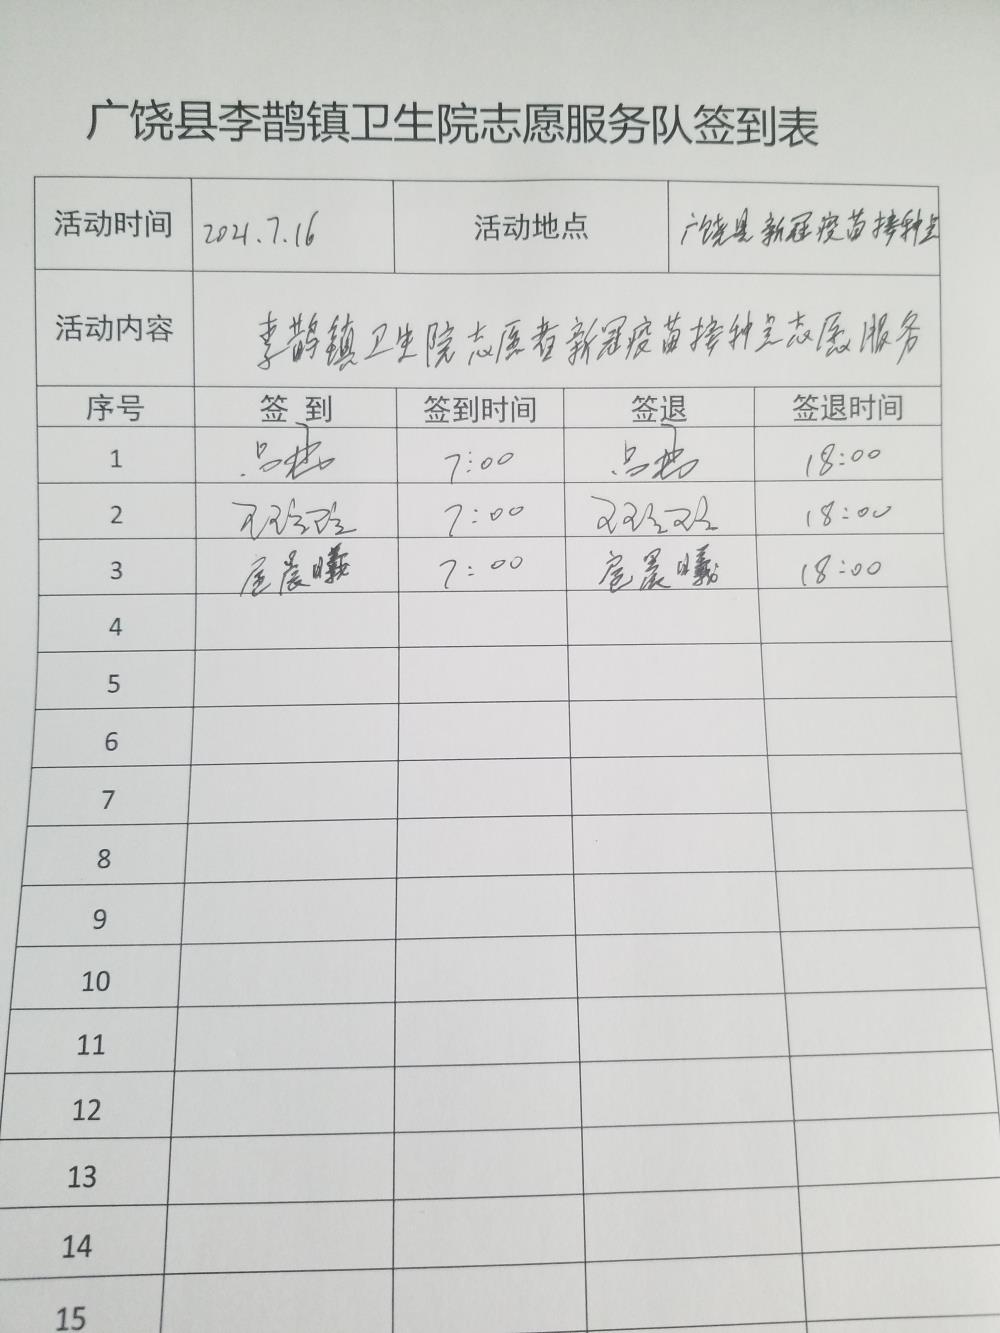 广饶县李鹊镇卫生院志愿服务队签到表
活动时间 2021.7.16 活动地点 广饶县新冠疫苗接种点
活动内容 李鹊镇卫生院志愿者新冠疫苗接种点志愿服务
序号 签到 签到时间 签退 签退时间
1 7:00 18:00
2 7:00 18:00
3 晨曦 7:00 晨曦 18:00
4
5
6
7
8
9
10
11
12
13
14
15